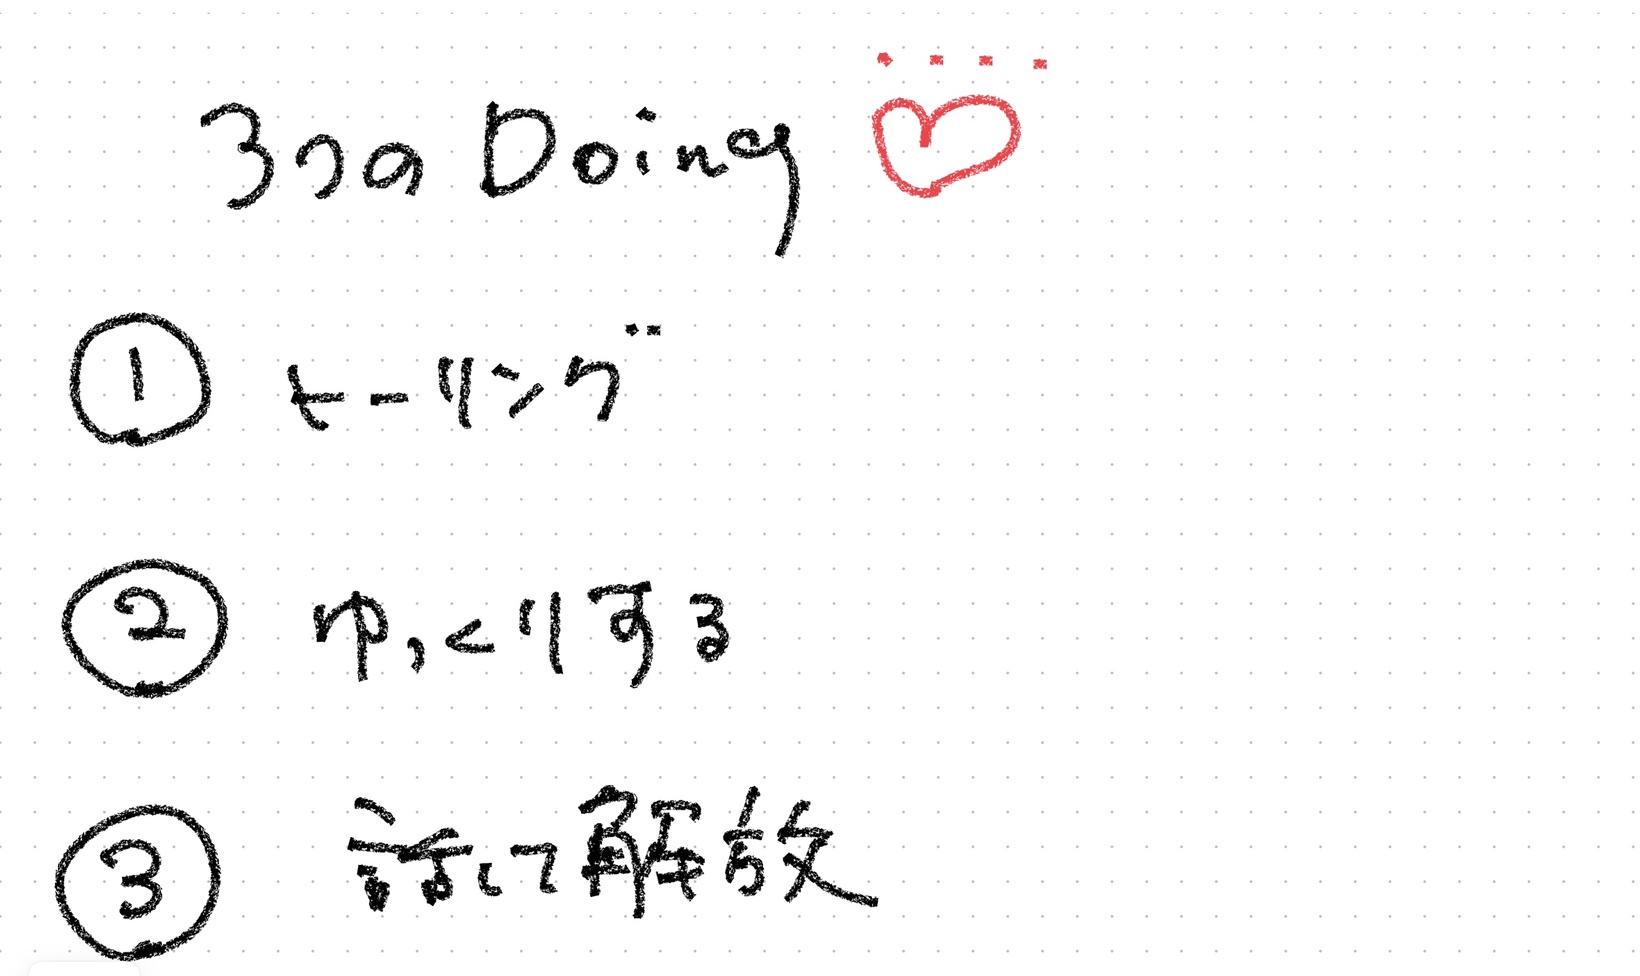 3つの Doing
① ヒーリング
② ゆっくりする
③ 話して解放